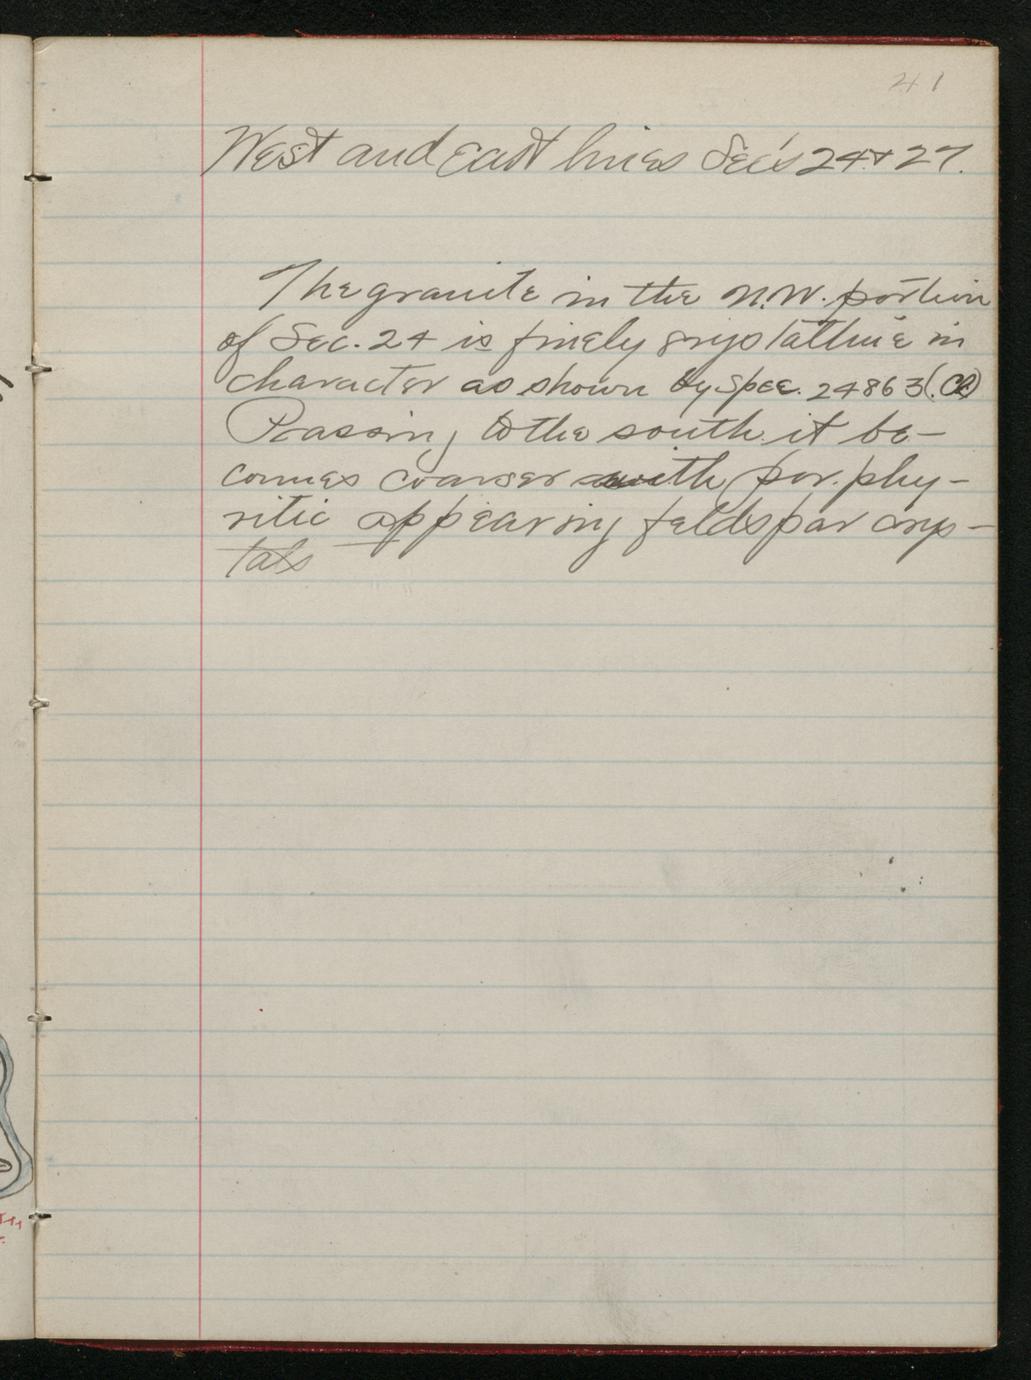 41
West and east lines Sec's 24 & 27.
The granite in the N.W. portion
of Sec. 24 is finely crystalline in
character as shown by spec. 24863 (CR)
Passing to the south it be-
comes coarser with porphy-
ritic appearing feldspar crys-
tals